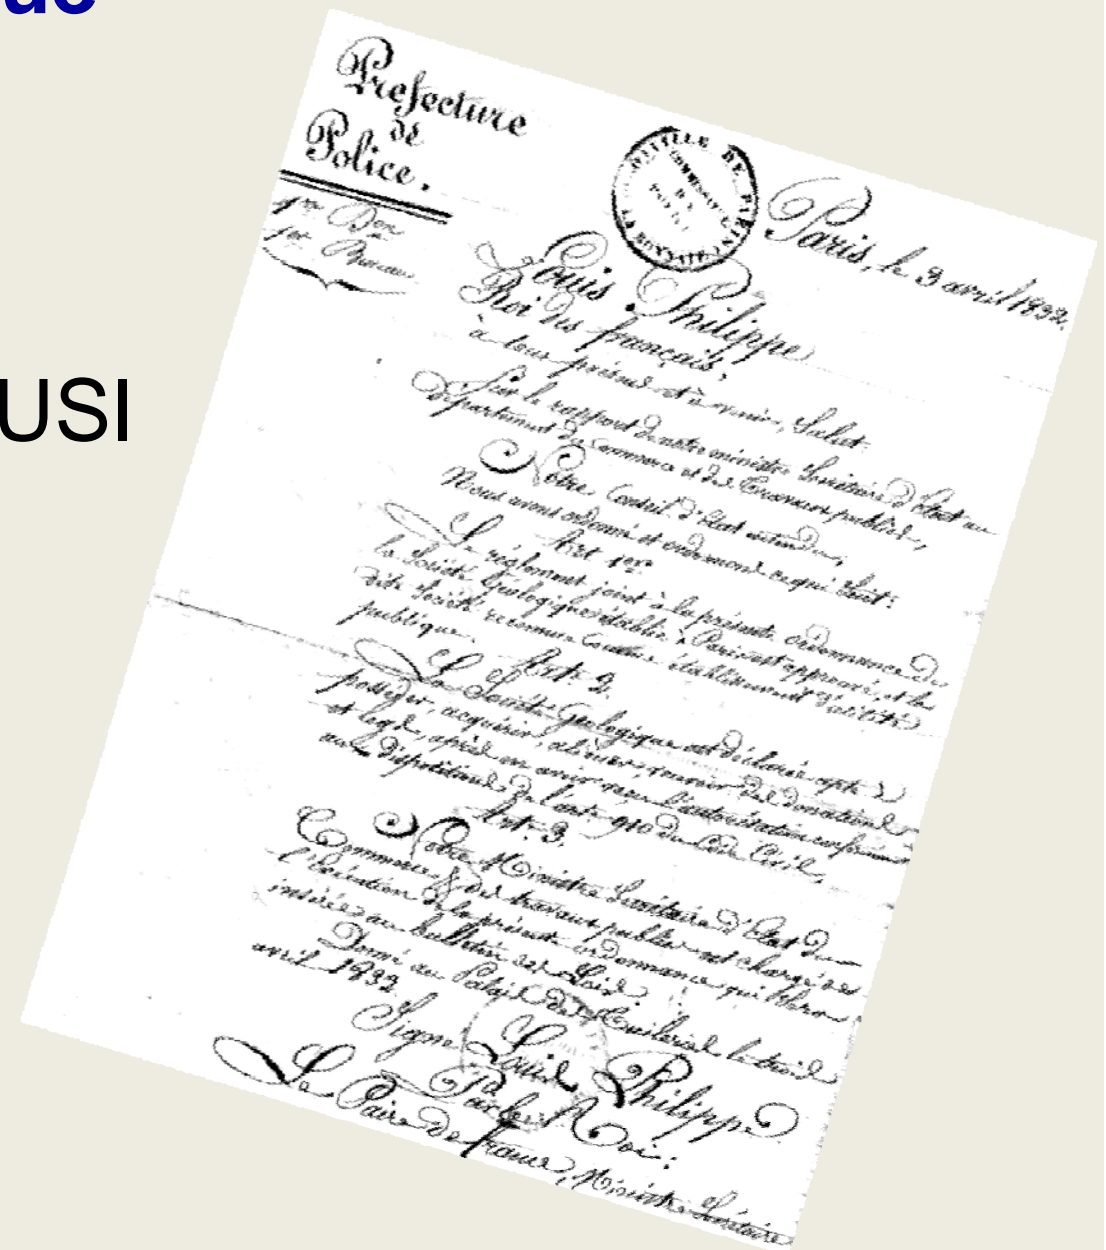 ue
USI
Prefecture
de
Police.
1re Don
1er Bureau
VILLE DE PARIS
Paris, le 3 avril 1832.
Louis Philippe
Roi des français,
à tous présens et à venir, Salut.
Sur le rapport de notre ministre Secrétaire d'État au
département du Commerce et des Travaux publics,
Notre Conseil d'État entendu,
Nous avons ordonné et ordonnons ce qui suit:
Art 1er
Le règlement joint à la présente ordonnance de
la Société Géologique établie à Paris est approuvé, et la
dite Société reconnue comme établissement d'utilité
publique.
Art. 2.
La Société Géologique est déclarée apte à
posséder, acquérir, aliéner, recevoir des donations
et legs, après en avoir reçu l'autorisation conformé
aux dispositions de l'art. 910 du Code Civil.
Art. 3.
Notre Ministre Secrétaire d'État du
Commerce & des travaux publics est chargé de
l'exécution de la présente ordonnance qui sera
insérée au bulletin des Lois.
Donné au Palais des Tuileries le trois
avril 1832
Signé Louis Philippe
Par le Roi:
Le Pair de France, Ministre Secrétaire